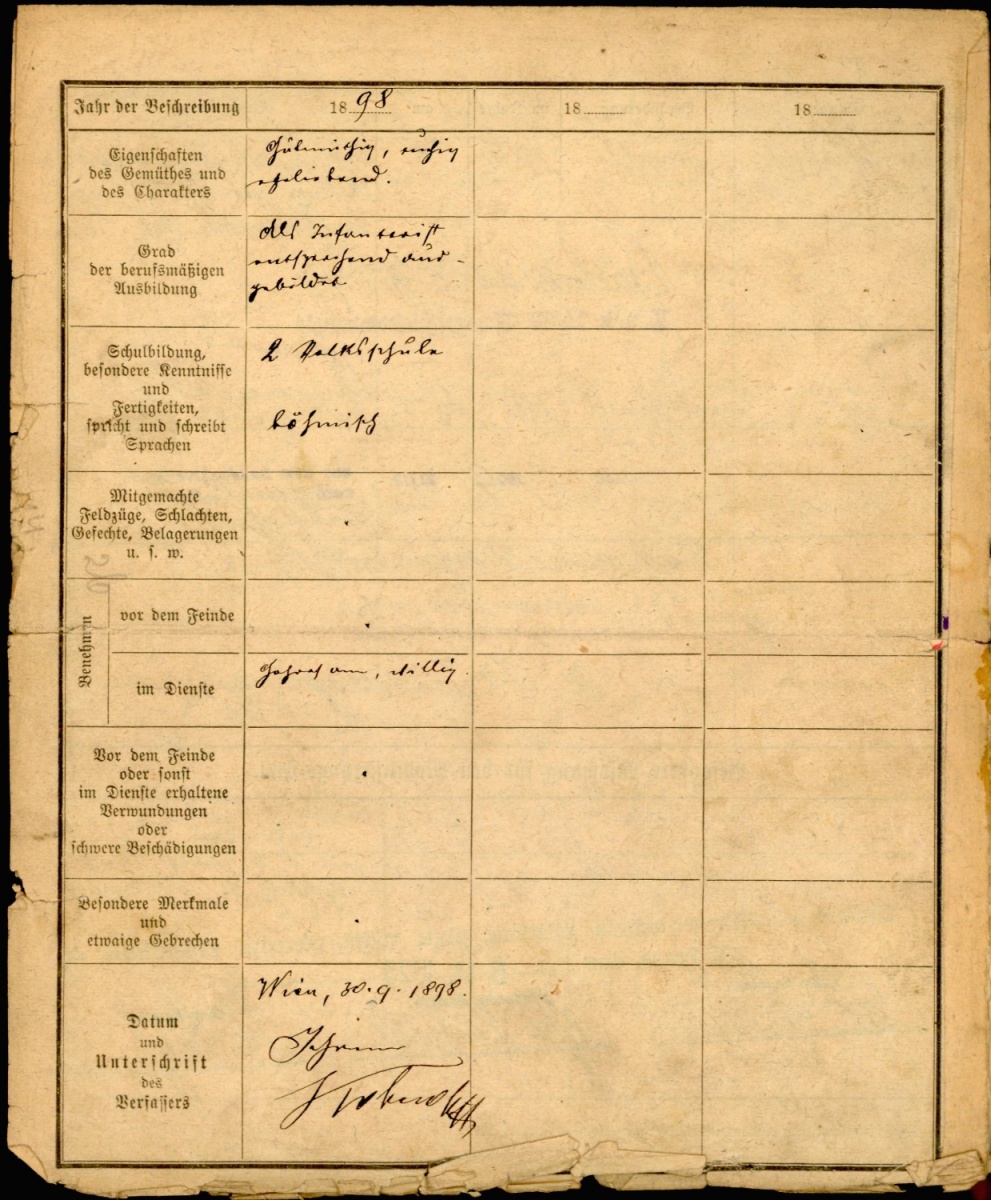 Jahr der Beschreibung 1898 18 18
Eigenschaften
des Gemüthes und
des Charakters
Gutmüthig, ruhig
ehrliebend.
Grad
der berufsmäßigen
Ausbildung
Als Infanterist
entsprechend aus-
gebildet
Schulbildung,
besondere Kenntnisse
und
Fertigkeiten,
spricht und schreibt
Sprachen
2 Volksschule
böhmisch
Mitgemachte
Feldzüge, Schlachten,
Gefechte, Belagerungen
u. s. w.
Benehmen
vor dem Feinde
im Dienste
Gehorsam, willig.
Vor dem Feinde
oder sonst
im Dienste erhaltene
Verwundungen
oder
schwere Beschädigungen
Besondere Merkmale
und
etwaige Gebrechen
Datum
und
Unterschrift
des
Verfassers
Wien, 30.9.1898.